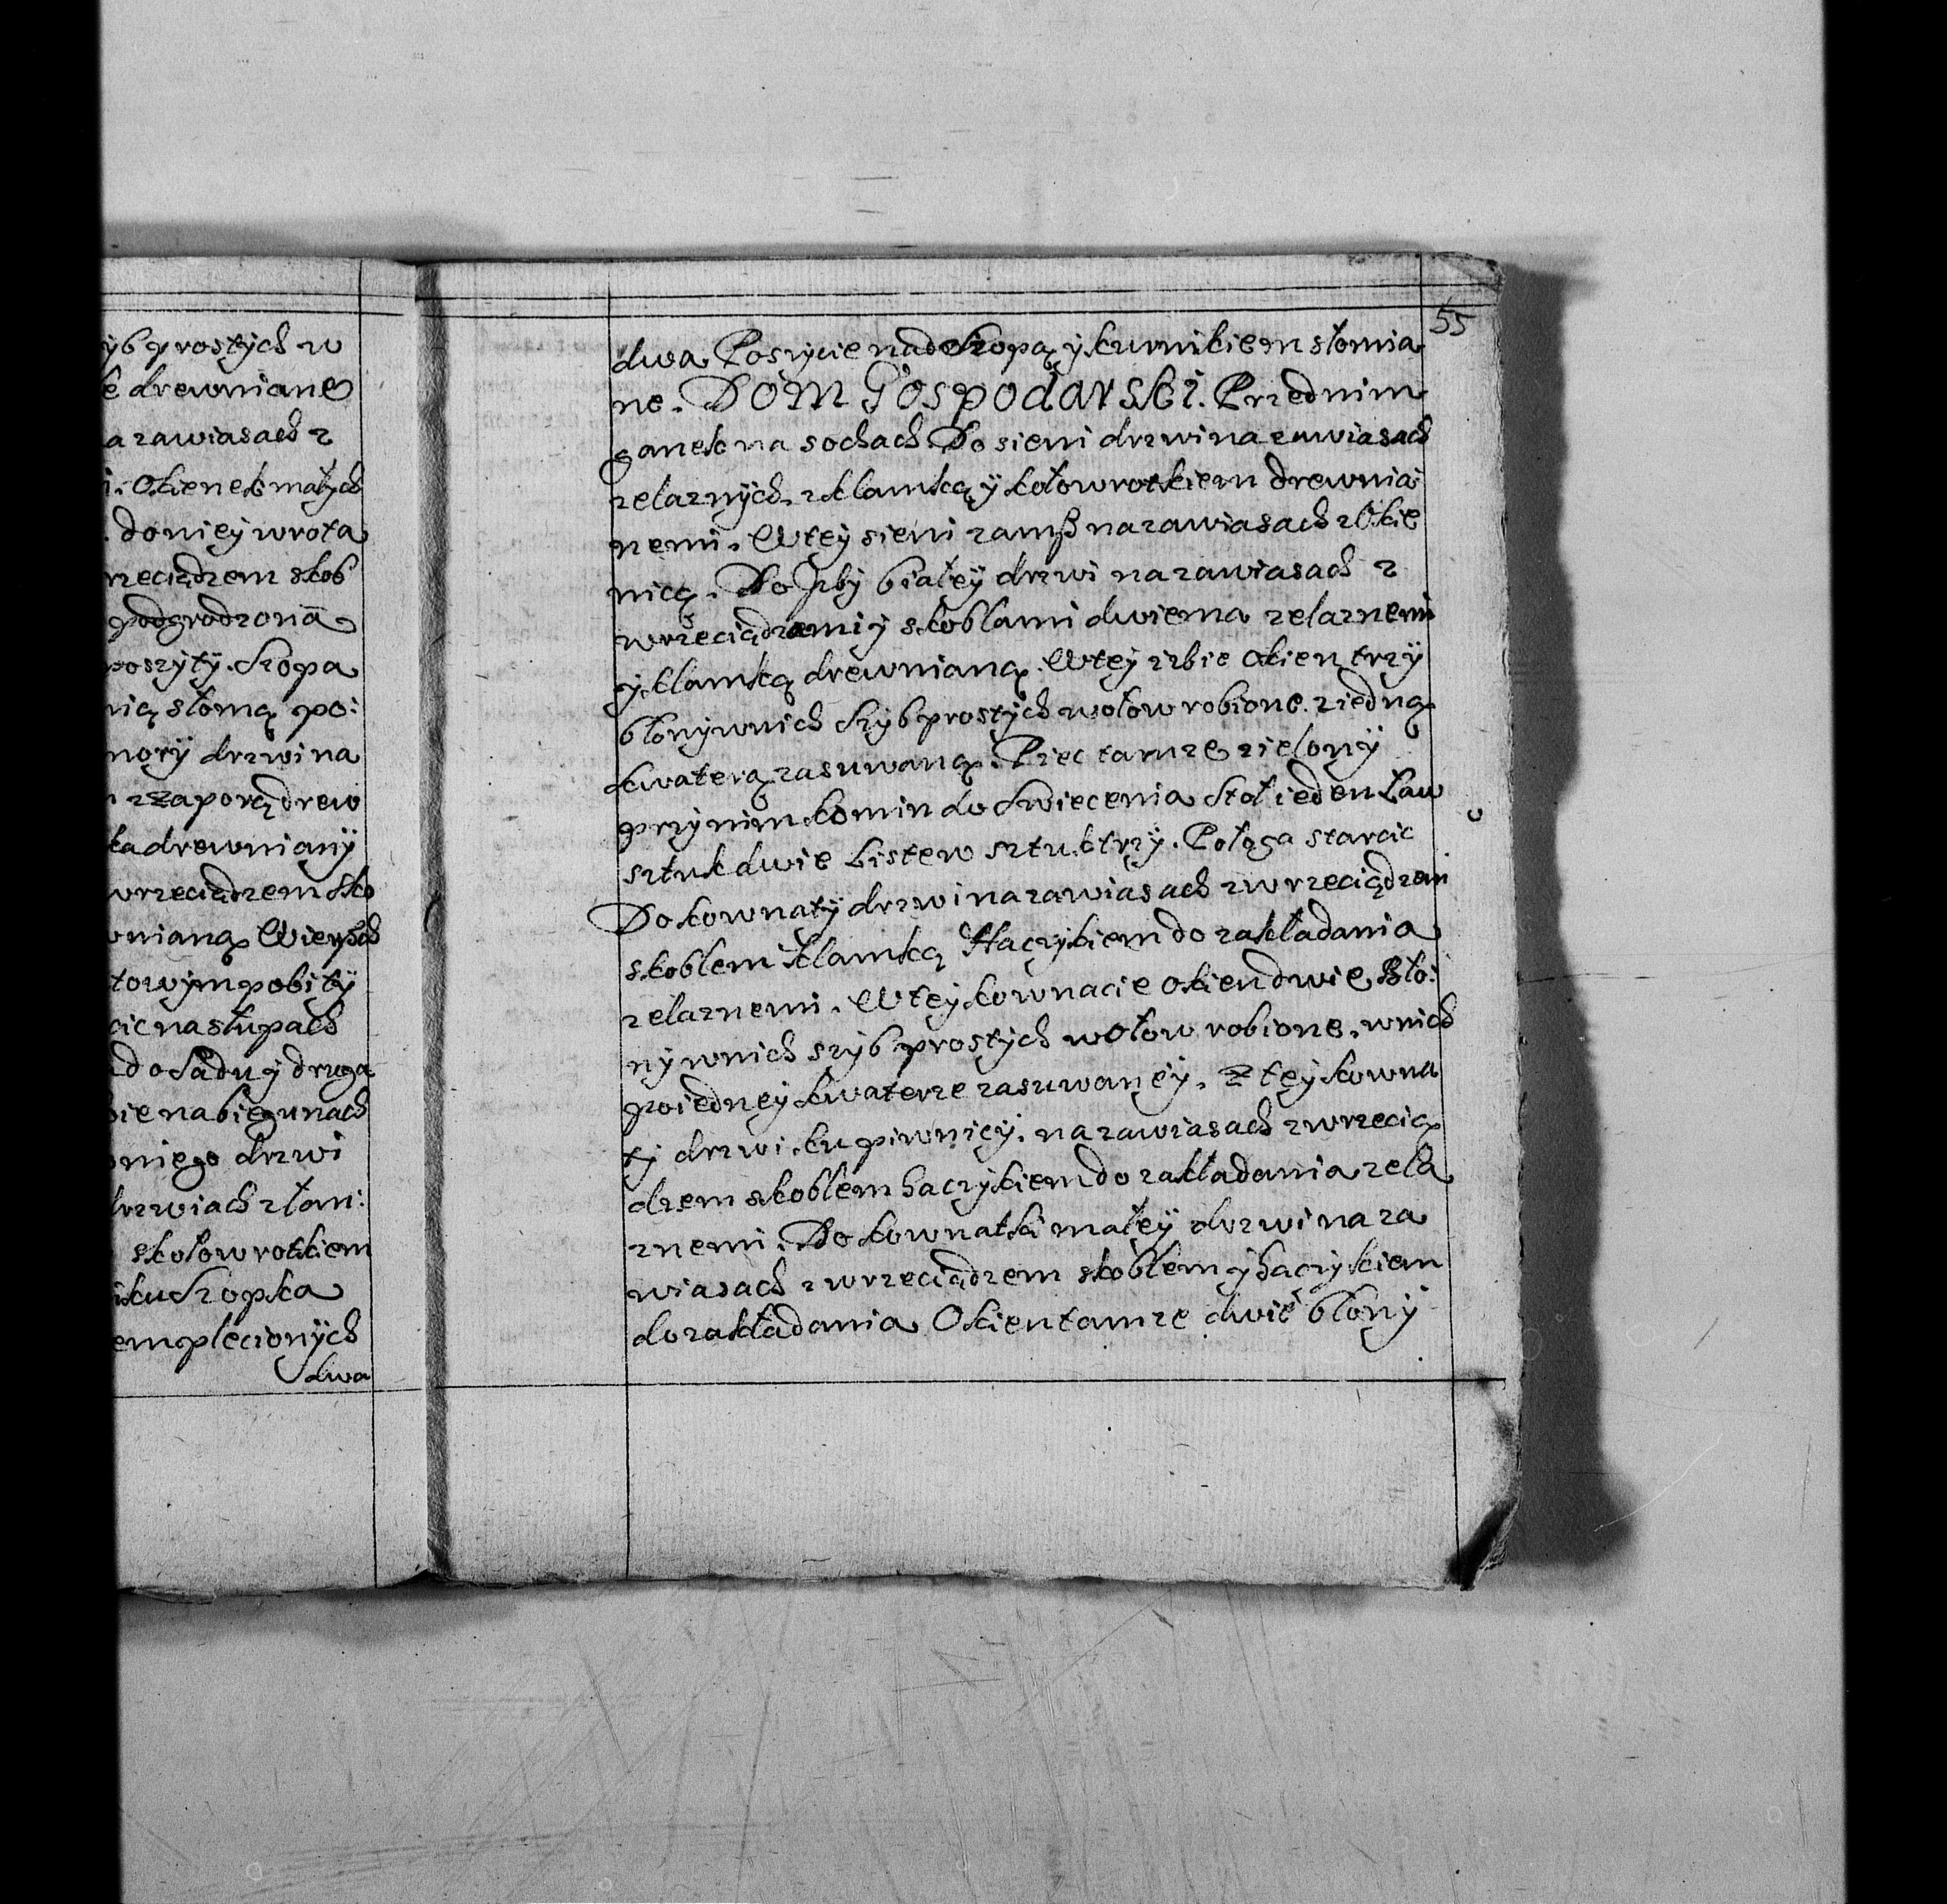 yb prostych w
e drewniane
a zawiasach z
i. Okienek małych
. do niey wrota
rzeciądzem skob
podgrodzona
poszyty. Szopa
nią słomą po:
mory drzwi na
z Zaporą drew
ka drewniany
wrzeciądzem sko
wnianą Wierzch
towym pobity
cic na słupach
do Sadu y druga
bie na biegunach
o niego drzwi
drzwiach z łoni:
skołowrotkiem
iku Szopka
em plecionych
dwa
55
dwa Poszycie nad Szopą y kurnikiem słomia
ne. Dom Gospodarski. Przed nim
ganek na sochach Do sieni drzwi na zawiasach
zelaznych. z klamką y kołowrotkiem drewnia:
nemi. W tey sieni zamß na zawiasach z Okie
nicą. Do Jzby białey drzwi na zawiasach z
wrzeciądzami y skoblami dwiema zelaznemi
y klamką drewnianą. W tey izbie Okien trzy
błony w nich Szyb prostych wołow robione. z iedną
kwaterą zasuwaną. Piec tamze zielony
przy nim komin do Swiecenia Stoł ieden Ław
sztuk dwie Listew sztuk trzy. Połąga starcic
Do kownaty drzwi na zawiasach z wrzeciądzem
skoblem klamką Haczykiem do zakładania
zelaznemi. W tey kownacie okien dwie Bło:
ny w nich szyb prostych wołow robione. w nich
po iedney kwaterze zasuwaney. Z tey kowna
ty drzwi ku piwnicy. na zawiasach z wrzecią
dzem skoblem haczykiem do zakładania zela
znemi. Do kownatki małey drzwi na za
wiasach z wrzeciądzem skoblem y haczykiem
do zakładania Okien tamze dwie błony